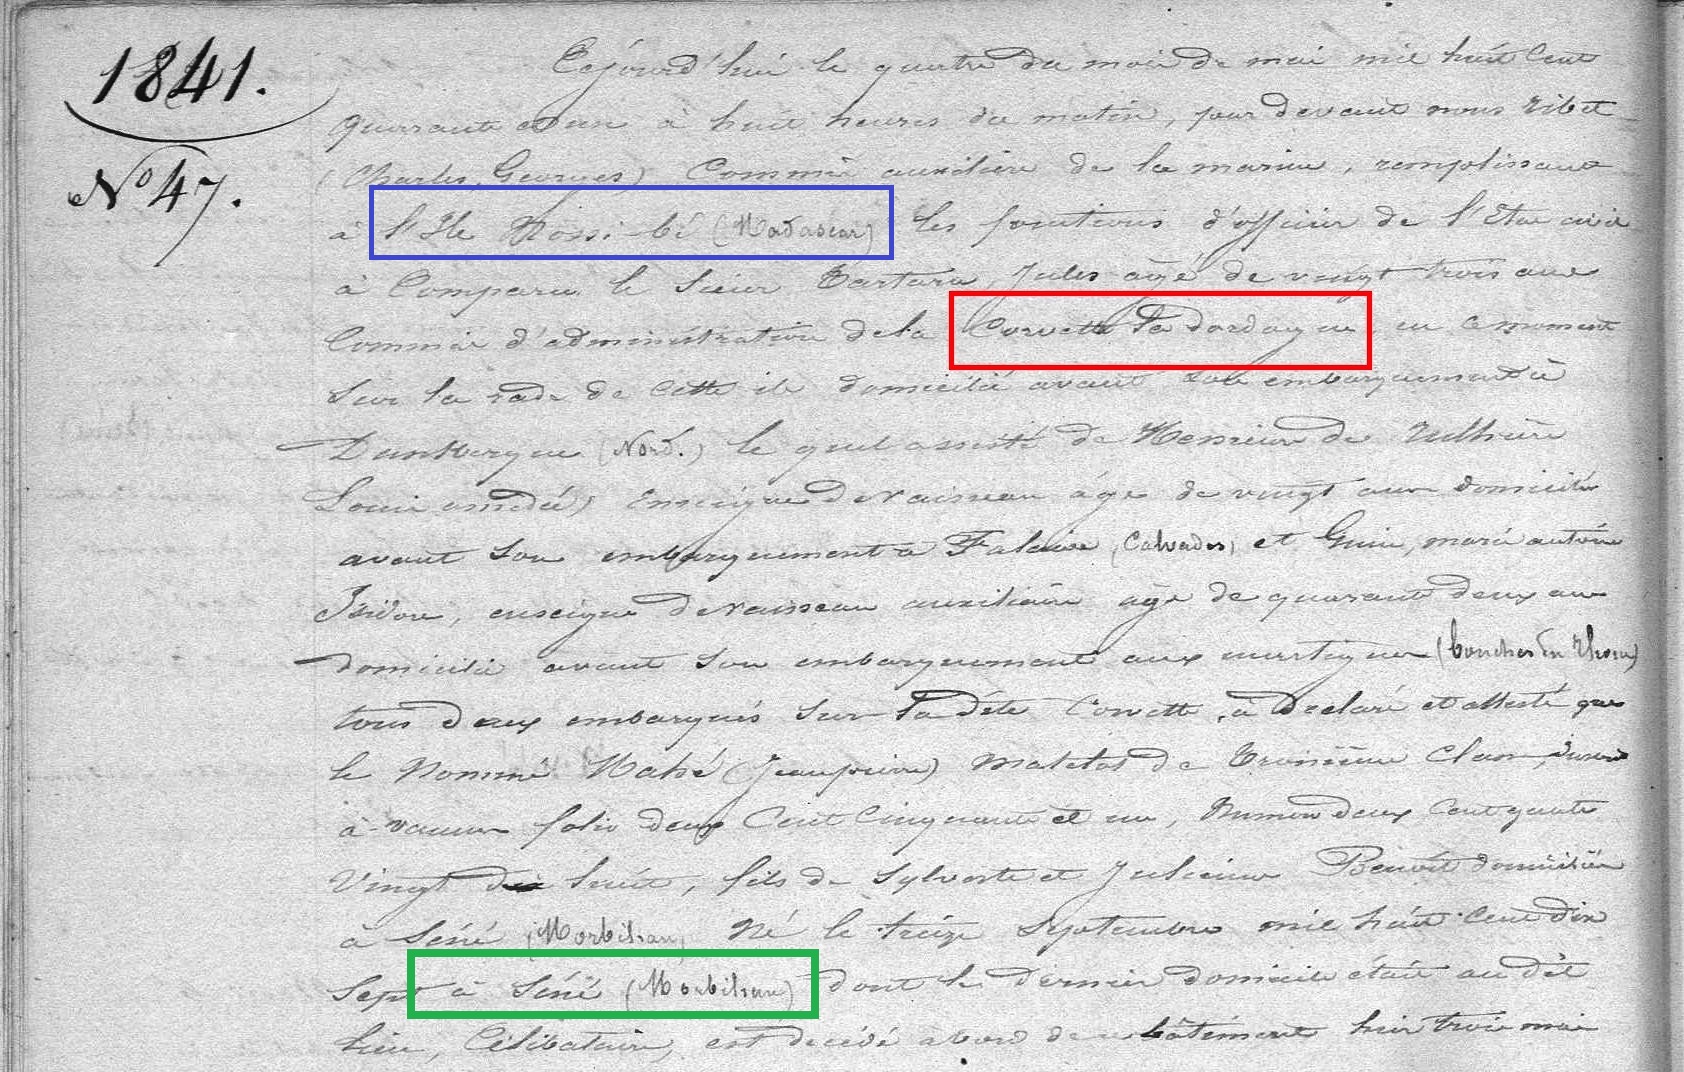 1841.
N° 47.
Cejourd'hui le quatre du mois de mai mil huit cent
quarante et un à huit heures du matin, par devant nous Ribet
(Charles, Georges) Commis auxiliaire de la marine, remplissant
à l'Ile Nossi-bé (Madascar) les fonctions d'officier de l'Etat civil
à Comparu le Sieur Tartara, Jules agé de vingt trois ans
Commis d'administration de la Corvette La dordogne, en ce moment
sur la rade de cette ile domicilié avant son embarquement à
Dunkerque (Nord.) le quel assisté de Messieurs de
Louis amédé) Enseigne de vaisseau âgé de vingt ans domicilié
avant son embarquement à Falaise (Calvados) et Guin, marie antoine
Isidore, enseigne de vaisseau auxiliaire âgé de quarante deux ans
domicilié avant son embarquement aux martigues (bouches du Rhone)
tous deux embarqués sur La dite Corvette, à Declaré et attesté que
le Nommé Mahé (Jean pierre) Matelot de Troisième Classe, inscrit
à vannes folio deux Cent Cinquante et un, Numéro deux Cent quatre
Vingt huit, fils de Sylvestre et Julienne Benoit domiciliés
à Séné (Morbihan) Né le treize Septembre mil huit Cent dix
Sept à Séné (Morbihan) dont le dernier domicile était au dit
lieu, Célibataire, est décédé à bord de bâtiment hier trois mai